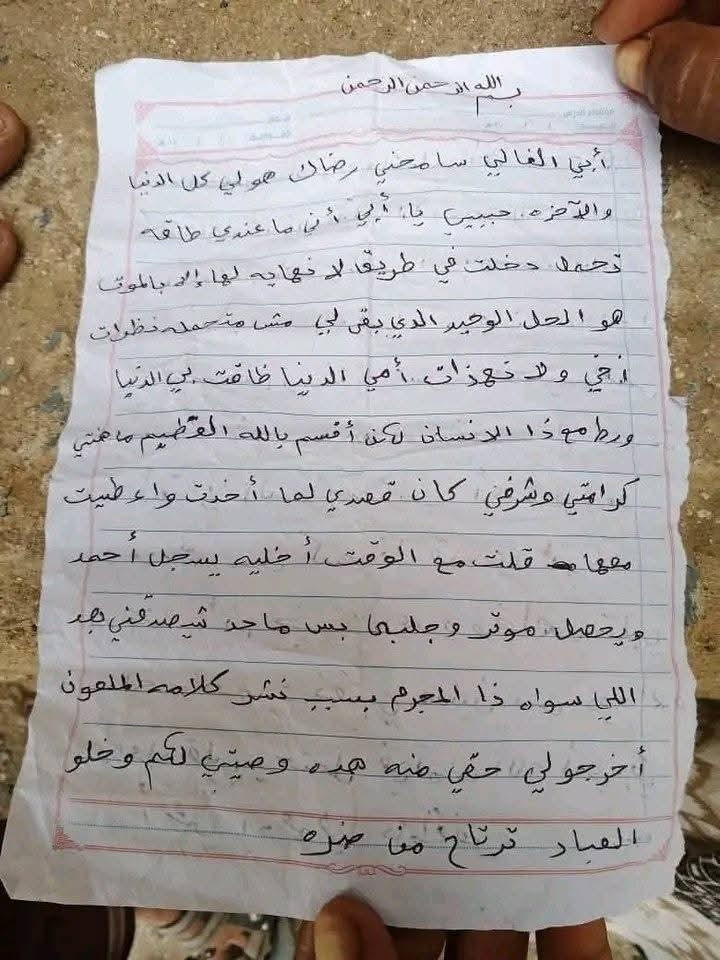 بسم الله الرحمن الرحمن
أبي الغالي سامحني رضاك هو لي كل الدنيا
والآخره حبيبي يا أبي أني ما عندي طاقه
تحمل دخلت في طريق لا نهايه لها إلا بالموت
هو الحل الوحيد الدي بقى لي مش متحمله نظرات
أخي ولا تنهذات أمي الدنيا ظاقت بي الدنيا
ورط مع ذا الانسان لكن أقسم بالله العظيم ما هنتي
كرامتي وشرفي كان قصدي لما أخدت واعطيت
معها قلت مع الوقت أخليه يسجل أحمد
ويحصل موتر وجلبها بس ماحد شيصدقني بعد
اللي سواه ذا المجرم بسبب نشر كلامه الملعون
أخرجولي حقي منه هده وصيتي لكم وخلو
العباد ترتاح من ضره